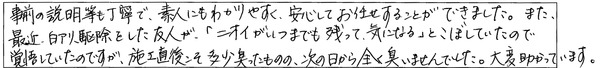 事前の説明等も丁寧で、素人にもわかりやすく、安心してお任せすることができました。また、
最近、白アリ駆除をした友人が、「ニオイがいつまでも残って、気になる」とこぼしていたので
覚悟していたのですが、施工直後こそ多少臭ったものの、次の日から全く臭いませんでした。大変助かっています。